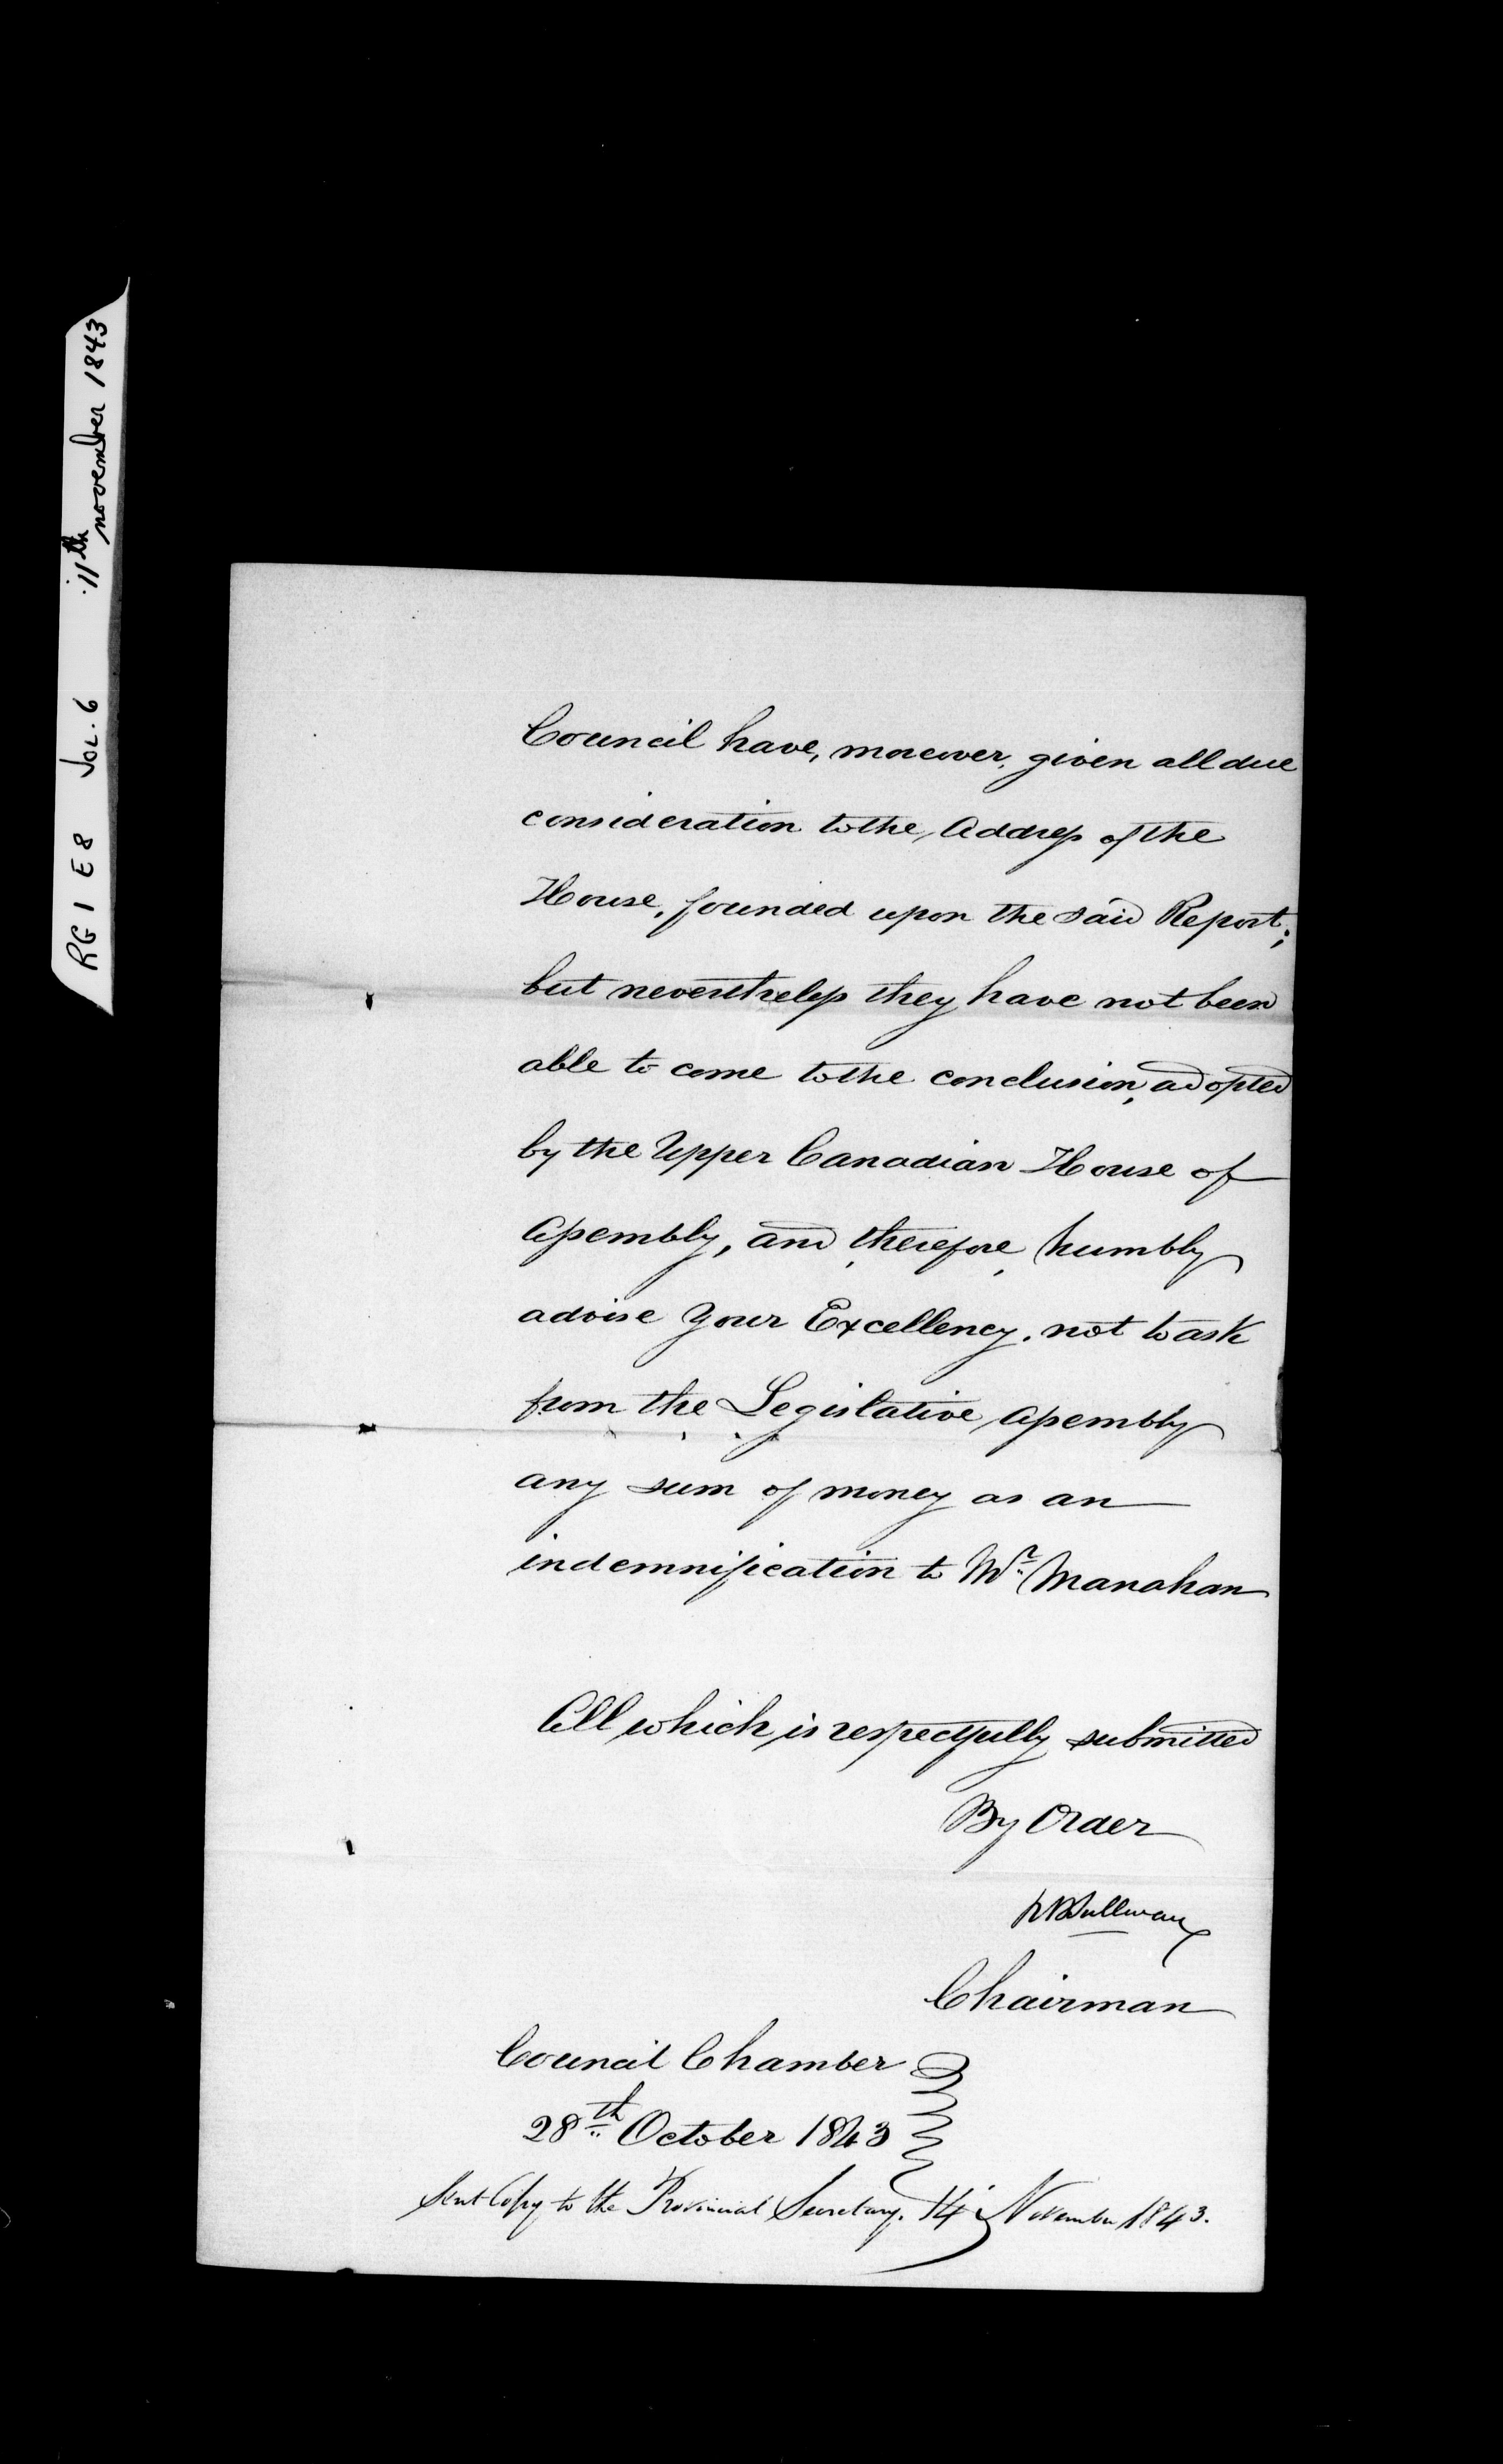 RG 1 E8 Vol. 6 11th november 1843
Council have, moreover, given all due
consideration to the Address of the
House, founded upon the said Report;
but nevertheless they have not been
able to come to the conclusion, adopted
by the Upper Canadian House of
Assembly, and, therefore, humbly
advise Your Excellency, not to ask
from the Legislative Assembly
any sum of money as an
indemnification to Mr. Manahan
All which is respectfully submitted
By Order
RBSullivan
Chairman
Council Chamber
28th October 1843
Sent Copy to the Provincial Secretary. 14 November 1843.